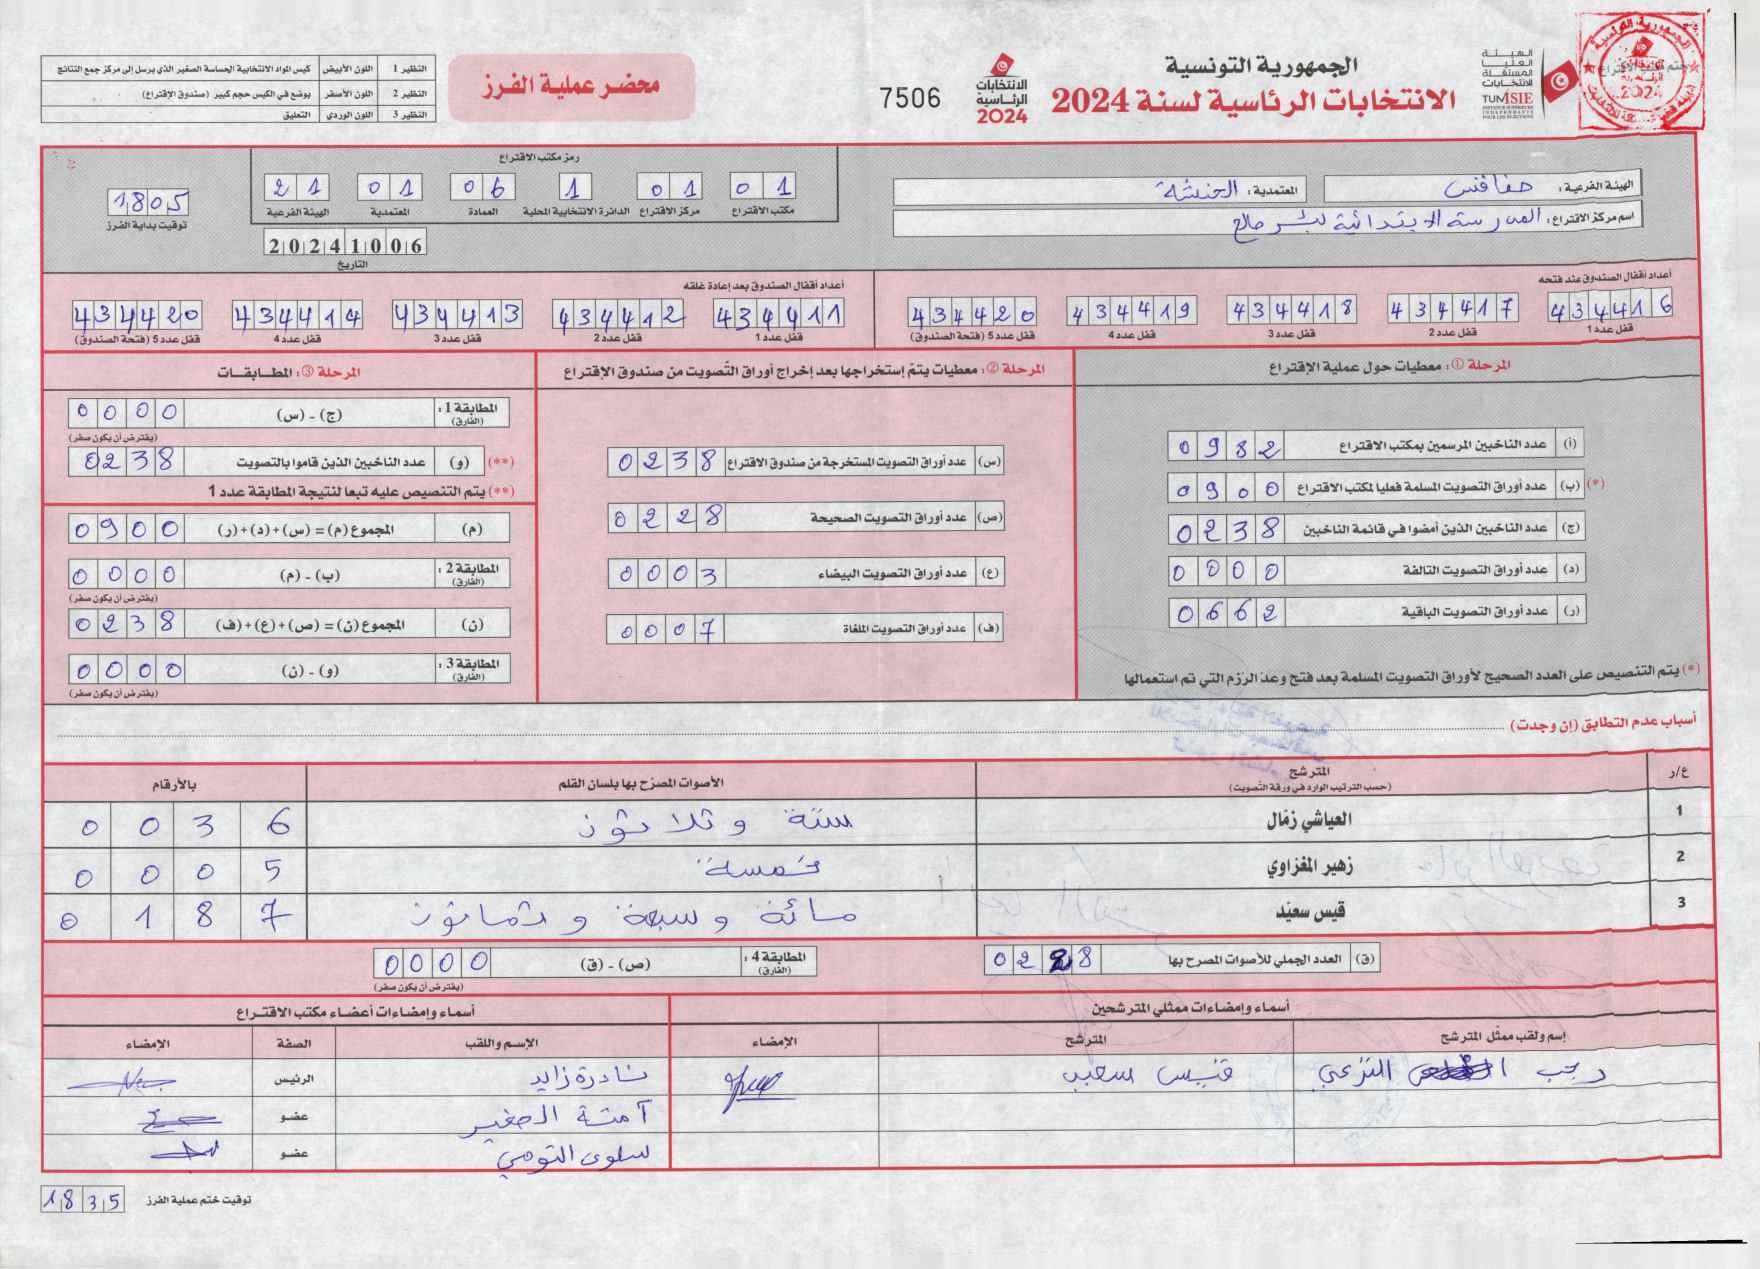 الجمهورية التونسية
الانتخابات الرئاسية لسنة 2024
الهيئة العليا المستقلة للانتخابات
TUNISIE
الانتخابات الرئاسية 2024
7506
محضر عملية الفرز
النظير 1 اللون الأبيض كيس المواد الانتخابية الحساسة الصغير الذي يرسل إلى مركز جمع النتائج
النظير 2 اللون الأصفر يوضع في الكيس حجم كبير (صندوق الإقتراع)
النظير 3 اللون الوردي التعليق
الهيئة الفرعية: صفاقس
المعتمدية: الحنشة
اسم مركز الاقتراع: المدرسة الابتدائية بئر صالح
رمز مكتب الاقتراع
01 مكتب الاقتراع
01 مركز الاقتراع
1 الدائرة الانتخابية المحلية
06 العمادة
01 المعتمدية
21 الهيئة الفرعية
20241006
التاريخ
1805
توقيت بداية الفرز
أعداد أقفال الصندوق عند فتحه
434416 قفل عدد 1
434417 قفل عدد 2
434418 قفل عدد 3
434419 قفل عدد 4
434420 قفل عدد 5 (فتحة الصندوق)
أعداد أقفال الصندوق بعد إعادة غلقه
434411 قفل عدد 1
434412 قفل عدد 2
434413 قفل عدد 3
434414 قفل عدد 4
434420 قفل عدد 5 (فتحة الصندوق)
المرحلة ①: معطيات حول عملية الإقتراع
(أ) عدد الناخبين المرسمين بمكتب الاقتراع 0982
(*) (ب) عدد أوراق التصويت المسلمة فعليا لمكتب الاقتراع 0900
(ج) عدد الناخبين الذين أمضوا في قائمة الناخبين 0238
(د) عدد أوراق التصويت التالفة 0000
(ر) عدد أوراق التصويت الباقية 0662
(*) يتم التنصيص على العدد الصحيح لأوراق التصويت المسلمة بعد فتح وعد الرزم التي تم استعمالها
المرحلة ②: معطيات يتم إستخراجها بعد إخراج أوراق التصويت من صندوق الإقتراع
(س) عدد أوراق التصويت المستخرجة من صندوق الاقتراع 0238
(ص) عدد أوراق التصويت الصحيحة 0228
(ع) عدد أوراق التصويت البيضاء 0003
(ف) عدد أوراق التصويت الملغاة 0007
المرحلة ③: المطابقات
المطابقة 1: (الفارق) (ج) - (س) 0000
(يفترض أن يكون صفر)
(**) (و) عدد الناخبين الذين قاموا بالتصويت 0238
(**) يتم التنصيص عليه تبعا لنتيجة المطابقة عدد 1
(م) المجموع (م) = (س) + (د) + (ر) 0900
المطابقة 2: (الفارق) (ب) - (م) 0000
(يفترض أن يكون صفر)
(ن) المجموع (ن) = (ص) + (ع) + (ف) 0238
المطابقة 3: (الفارق) (و) - (ن) 0000
(يفترض أن يكون صفر)
أسباب عدم التطابق (إن وجدت)
ع/ر المترشح الأصوات المصرح بها بلسان القلم بالأرقام
(حسب الترتيب الوارد في ورقة التصويت)
1 العياشي زمّال ستة وثلاثون 0036
2 زهير المغزاوي خمسة 0005
3 قيس سعيّد مائة وسبعة وثمانون 0187
(ق) العدد الجملي للأصوات المصرح بها 0228
المطابقة 4: (الفارق) (ص) - (ق) 0000
(يفترض أن يكون صفر)
أسماء وإمضاءات ممثلي المترشحين
إسم ولقب ممثل المترشح المترشح الإمضاء
رجب النزعي قيس سعيد
أسماء وإمضاءات أعضاء مكتب الاقتراع
الإسم واللقب الصفة الإمضاء
نادرة زايد الرئيس
آمنة الصغير عضو
سلوى التومي عضو
توقيت ختم عملية الفرز 1835